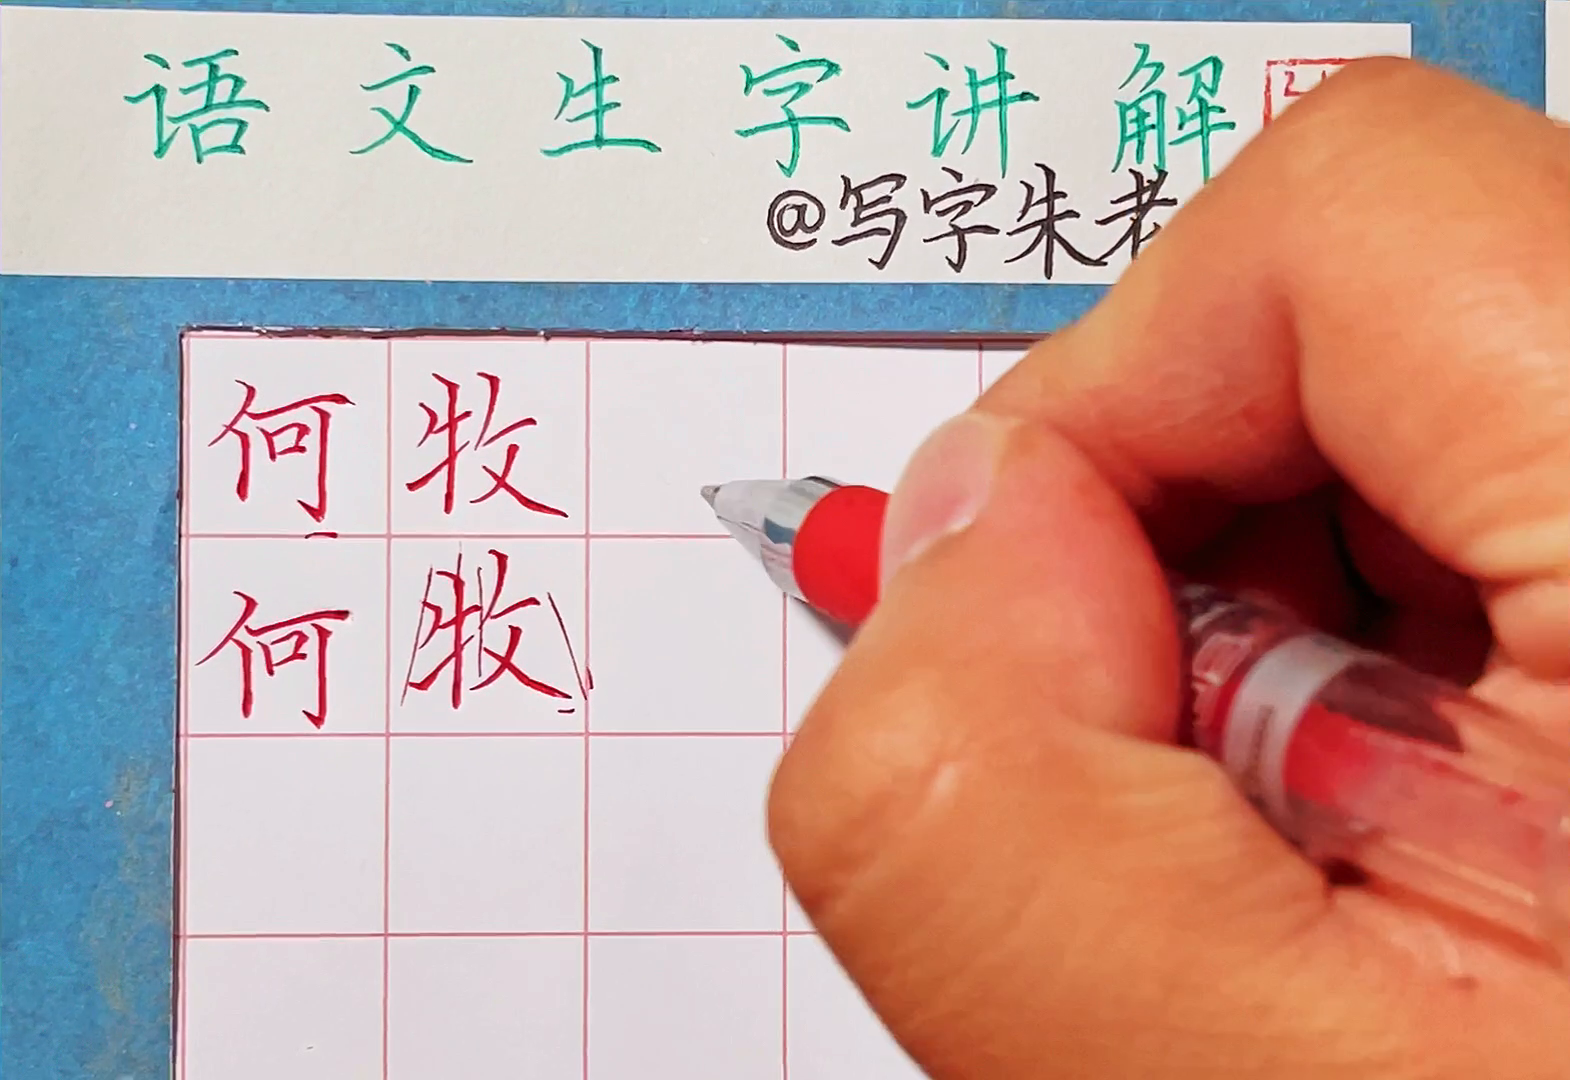 语文生字讲解
@写字朱老
何牧
何牧